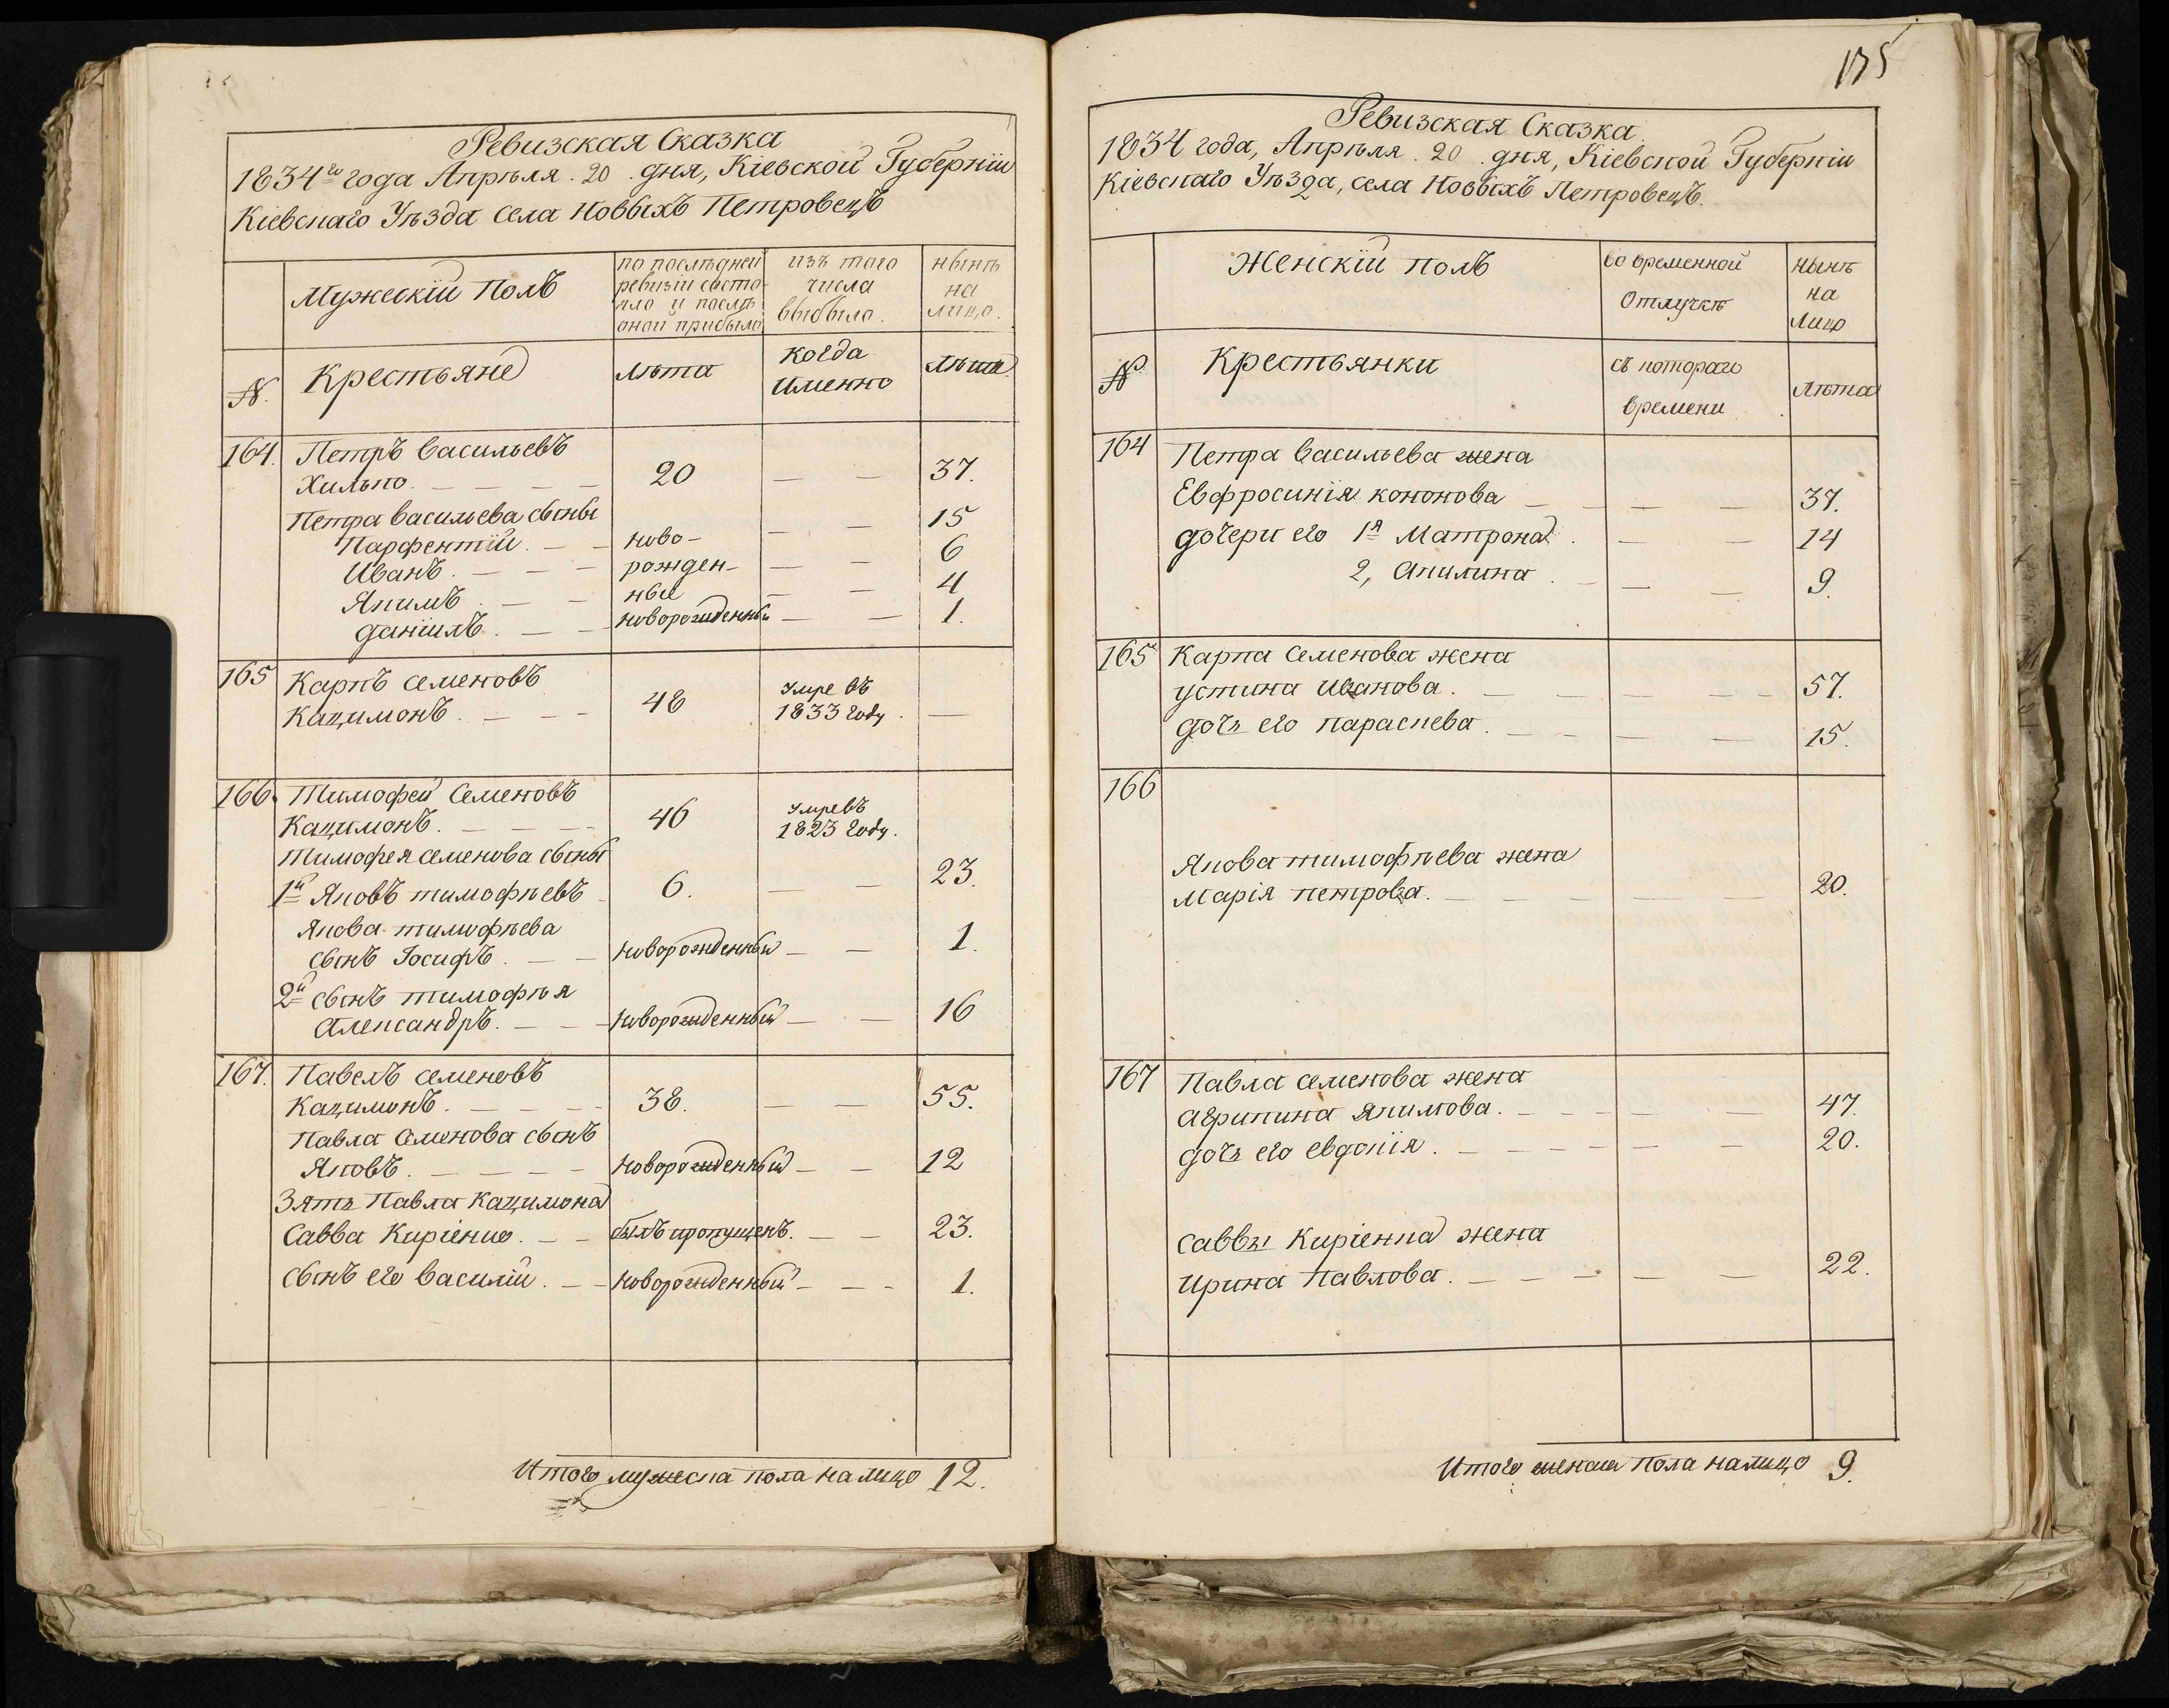 Ревизская Сказка
1834го года Апрѣля . 20 . дня, Кіевской Губерніи
Кіевскаго Уѣзда села Новыхъ Петровецъ
Мужескій Полъ
по послѣдней
ревизіи состо-
яло и послѣ
оной прибыло
изъ того
числа
выбыло.
нынѣ
на
лицо.
№.
Крестьяне
лѣта
когда
именно
лѣта
164. Петръ Васильевъ
Хилько. — — — — 20 — — 37.
Петра Васильева сыны
Парфентій. — — ново- — — 15
Иванъ. — — — рожден- — — 6
Якимъ. — — ные — — 4
Даніилъ. — — новорожденный — — 1.
165 Карпъ Семеновъ
Кацимонъ. — — — 48 умре въ 1833 году. —
166. Тимофей Семеновъ
Кацимонъ. — — — 46 умре въ 1823 году.
Тимофея Семенова сыны
1й Яковъ Тимофѣевъ — 6. — — 23.
Якова Тимофѣева
сынъ Іосифъ. — — новорожденный — — 1.
2й сынъ Тимофѣя
Александръ. — — новорожденный — — 16
167. Павелъ Семеновъ
Кацимонъ. — — — — 38. — — 55.
Павла Семенова сынъ
Яковъ. — — — — новорожденный — — 12
Зять Павла Кацимона
Савва Киріенко. — — былъ пропущенъ. — — 23.
сынъ его Василій. — — новорожденный — — — 1.
Итого мужеска пола налицо 12.
175
Ревизская Сказка
1834 года, Апрѣля . 20 . дня, Кіевской Губерніи
Кіевскаго Уѣзда, села Новыхъ Петровецъ.
Женскій полъ
во временной
отлучкѣ
нынѣ
на
лицо
№
Крестьянки
съ котораго
времени
лѣта
164 Петра Васильева жена
Евфросинія Кононова — — — — 37.
дочери его 1я Матрона. — — 14
2, Акилина. — — — 9.
165 Карпа Семенова жена
Устина Иванова. — — — — — 57.
дочь его Параскева. — — — — — 15.
166
Якова Тимофѣева жена
Марія Петрова. — — — — — 20.
167 Павла Семенова жена
Агрипина Якимова. — — — — — 47.
дочь его Евдокія. — — — — — — 20.
Саввы Киріенка жена
Ирина Павлова. — — — — — 22.
Итого женска пола налицо 9.